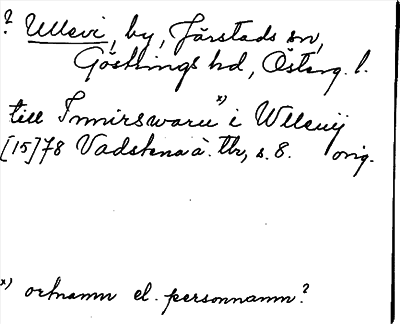 ? Ullevi, by, Järstads sn,
Göstrings hd, Österg. l.
till Tmirswaru x) i Wlleuij
[15]78 Vadstena à. Thr, s. 8. orig.
x) ortnamn el. personnamn?